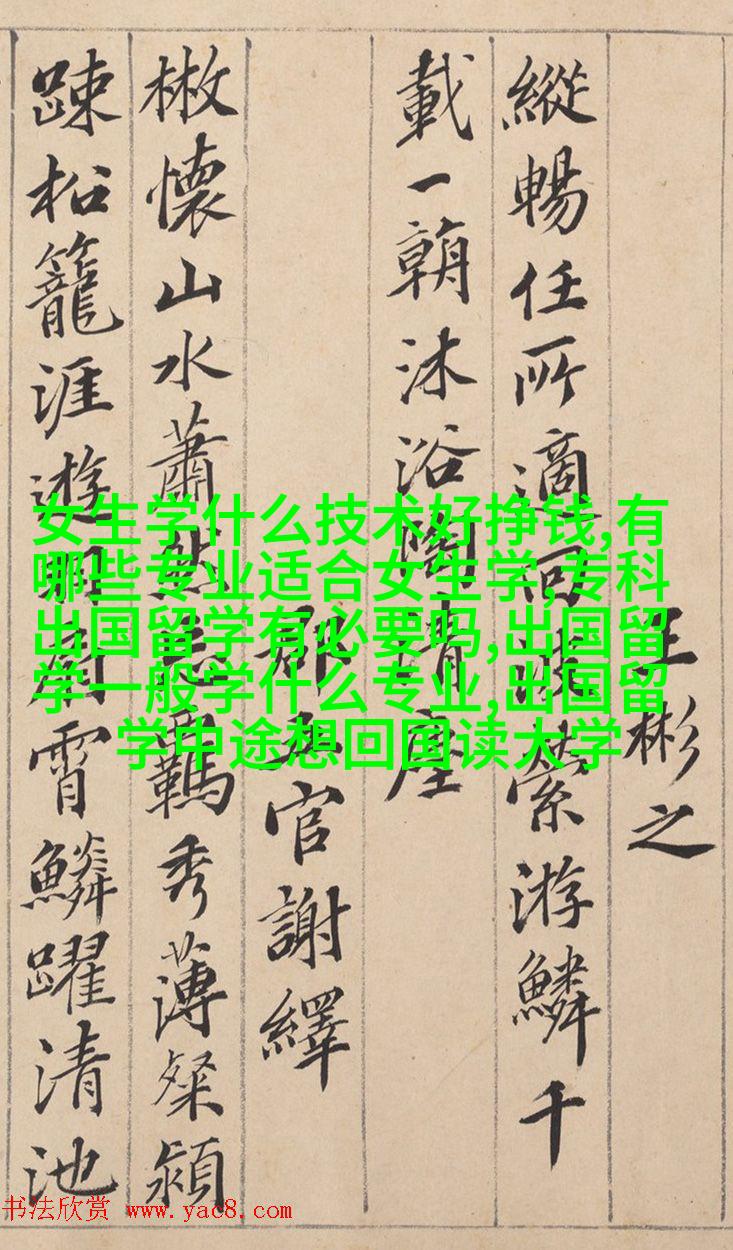 王彬之
縱暢任所適回波縈游鱗千
載一朝沐浴陶清塵
郡五官謝繹
散懷山水蕭然忘羈秀薄粲穎
踈松籠涯遊羽扇霄鱗躍清池
女生学什么技术好挣钱,有
哪些专业适合女生学,专科
出国留学有必要吗,出国留
学一般学什么专业,出国留
学中途想回国读大学
书法欣赏 www.yac8.com